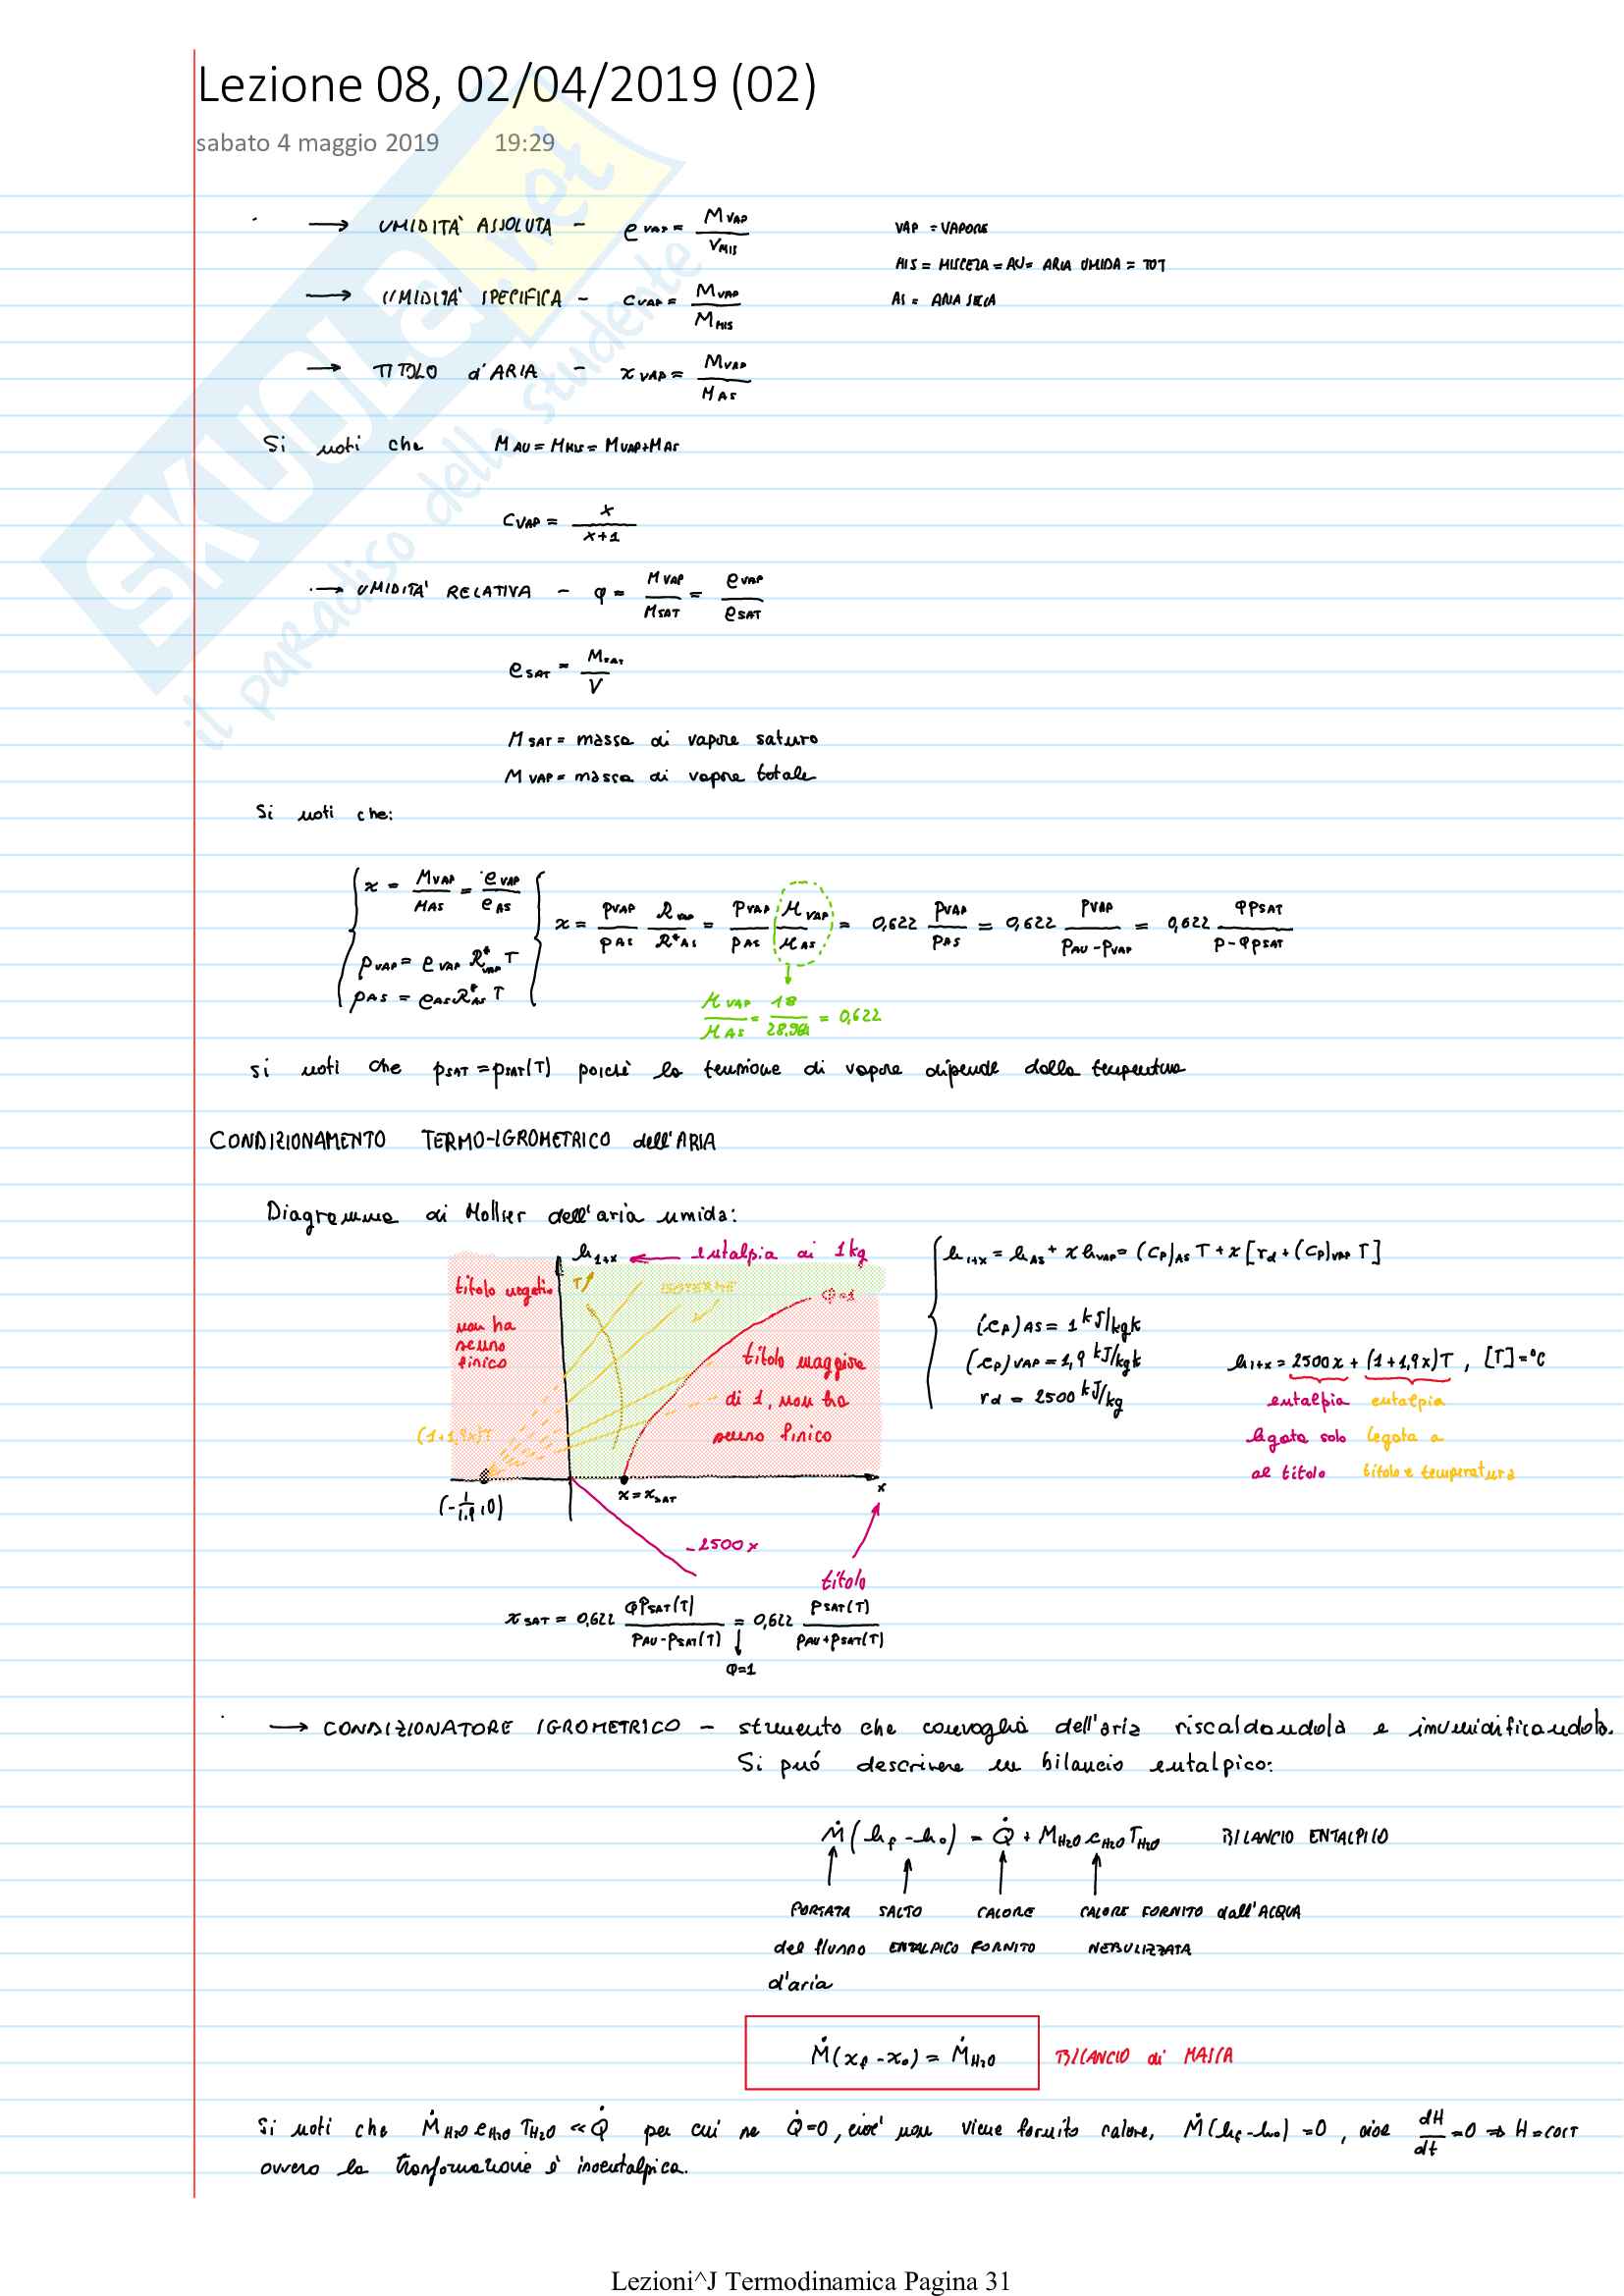 Lezione 08, 02/04/2019 (02)
sabato 4 maggio 2019 19:29
SKUOLA.net
il paradiso dello studente
→ UMIDITÀ ASSOLUTA - ρVAP = MVAP / VMIS
VAP = VAPORE
MIS = MISCELA = AU = ARIA UMIDA = TOT
→ UMIDITÀ SPECIFICA - cVAP = MVAP / MMIS
AS = ARIA SECCA
→ TITOLO d'ARIA - xVAP = MVAP / MAS
Si noti che MAU = MMIS = MVAP + MAS
CVAP = x / x+1
→ UMIDITA' RELATIVA - φ = MVAP / MSAT = ρVAP / ρSAT
ρSAT = MSAT / V
MSAT = massa di vapore saturo
MVAP = massa di vapore totale
Si noti che:
{ x = MVAP / MAS = ρVAP / ρAS
pVAP = ρVAP R*VAP T
pAS = ρAS R*AS T
{ x = pVAP / pAS RVAP / R*AS = pVAP / pAS MVAP / MAS = 0,622 pVAP / pAS = 0,622 pVAP / pAU - pVAP = 0,622 φpSAT / p-φpSAT
MVAP / MAS = 18 / 28,964 = 0,622
si noti che pSAT = pSAT(T) poichè la tensione di vapore dipende dalla temperatura
CONDIZIONAMENTO TERMO-IGROMETRICO dell'ARIA
Diagramma di Mollier dell'aria umida:
h1+x ← entalpia di 1kg
titolo negativo
non ha
senso
fisico
T
ISOTERME
φ=1
titolo maggiore
di 1, non ha
senso fisico
(1+1,9x)T
(-1/1.9, 0)
x = xSAT
x
-2500x
titolo
{ h1+x = hAS + x hVAP = (CP)AS T + x [rd + (CP)VAP T]
(CP)AS = 1 kJ/kgk
(CP)VAP = 1,9 kJ/kgk
rd = 2500 kJ/kg
h1+x = 2500x + (1+1,9x)T, [T] = °C
entalpia entalpia
legata solo legata a
al titolo titolo e temperatura
xSAT = 0,622 φPSAT(T) / PAU - PSAT(T) = 0,622 PSAT(T) / PAU + PSAT(T)
φ=1
→ CONDIZIONATORE IGROMETRICO - strumento che convoglia dell'aria riscaldandola e inumidificandola.
Si può descrivere un bilancio entalpico:
Ṁ(hf - h0) = Q̇ + MH2O cH2O TH2O BILANCIO ENTALPICO
PORTATA SALTO CALORE CALORE FORNITO dall'ACQUA
del flusso ENTALPICO FORNITO NEBULIZZATA
d'aria
Ṁ(xf - x0) = ṀH2O BILANCIO di MASSA
Si noti che ṀH2O cH2O TH2O << Q̇ per cui se Q̇=0, cioè non viene fornito calore, Ṁ(hf-h0) = 0, cioe dH/dt = 0 ⇒ H = cost
ovvero la trasformazione è isoentalpica.
Lezioni^J Termodinamica Pagina 31